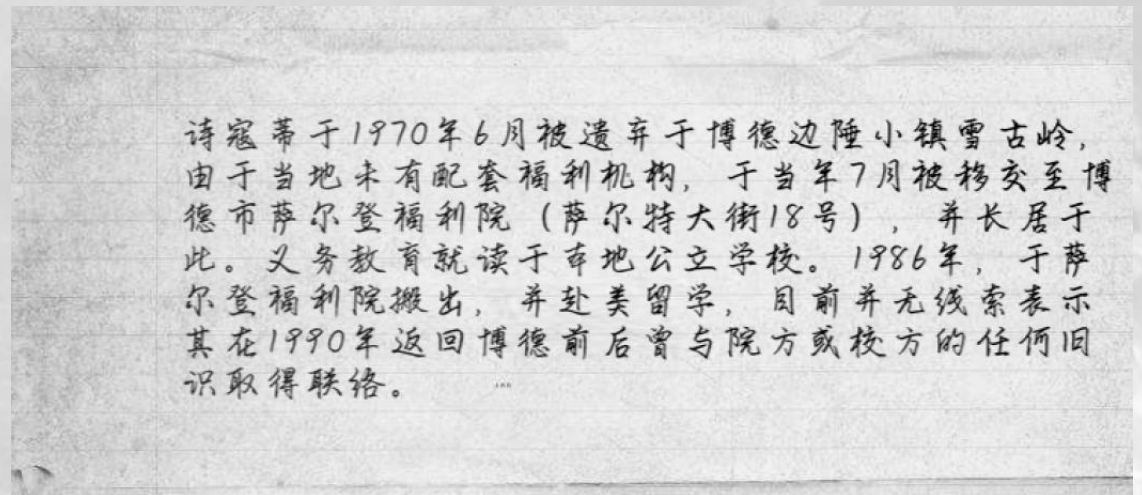 诗寇蒂于1970年6月被遗弃于博德边陲小镇雪古岭，
由于当地未有配套福利机构，于当年7月被移交至博
德市萨尔登福利院（萨尔特大街18号），并长居于
此。义务教育就读于本地公立学校。1986年，于萨
尔登福利院搬出，并赴美留学，目前并无线索表示
其在1990年返回博德前后曾与院方或校方的任何旧
识取得联络。